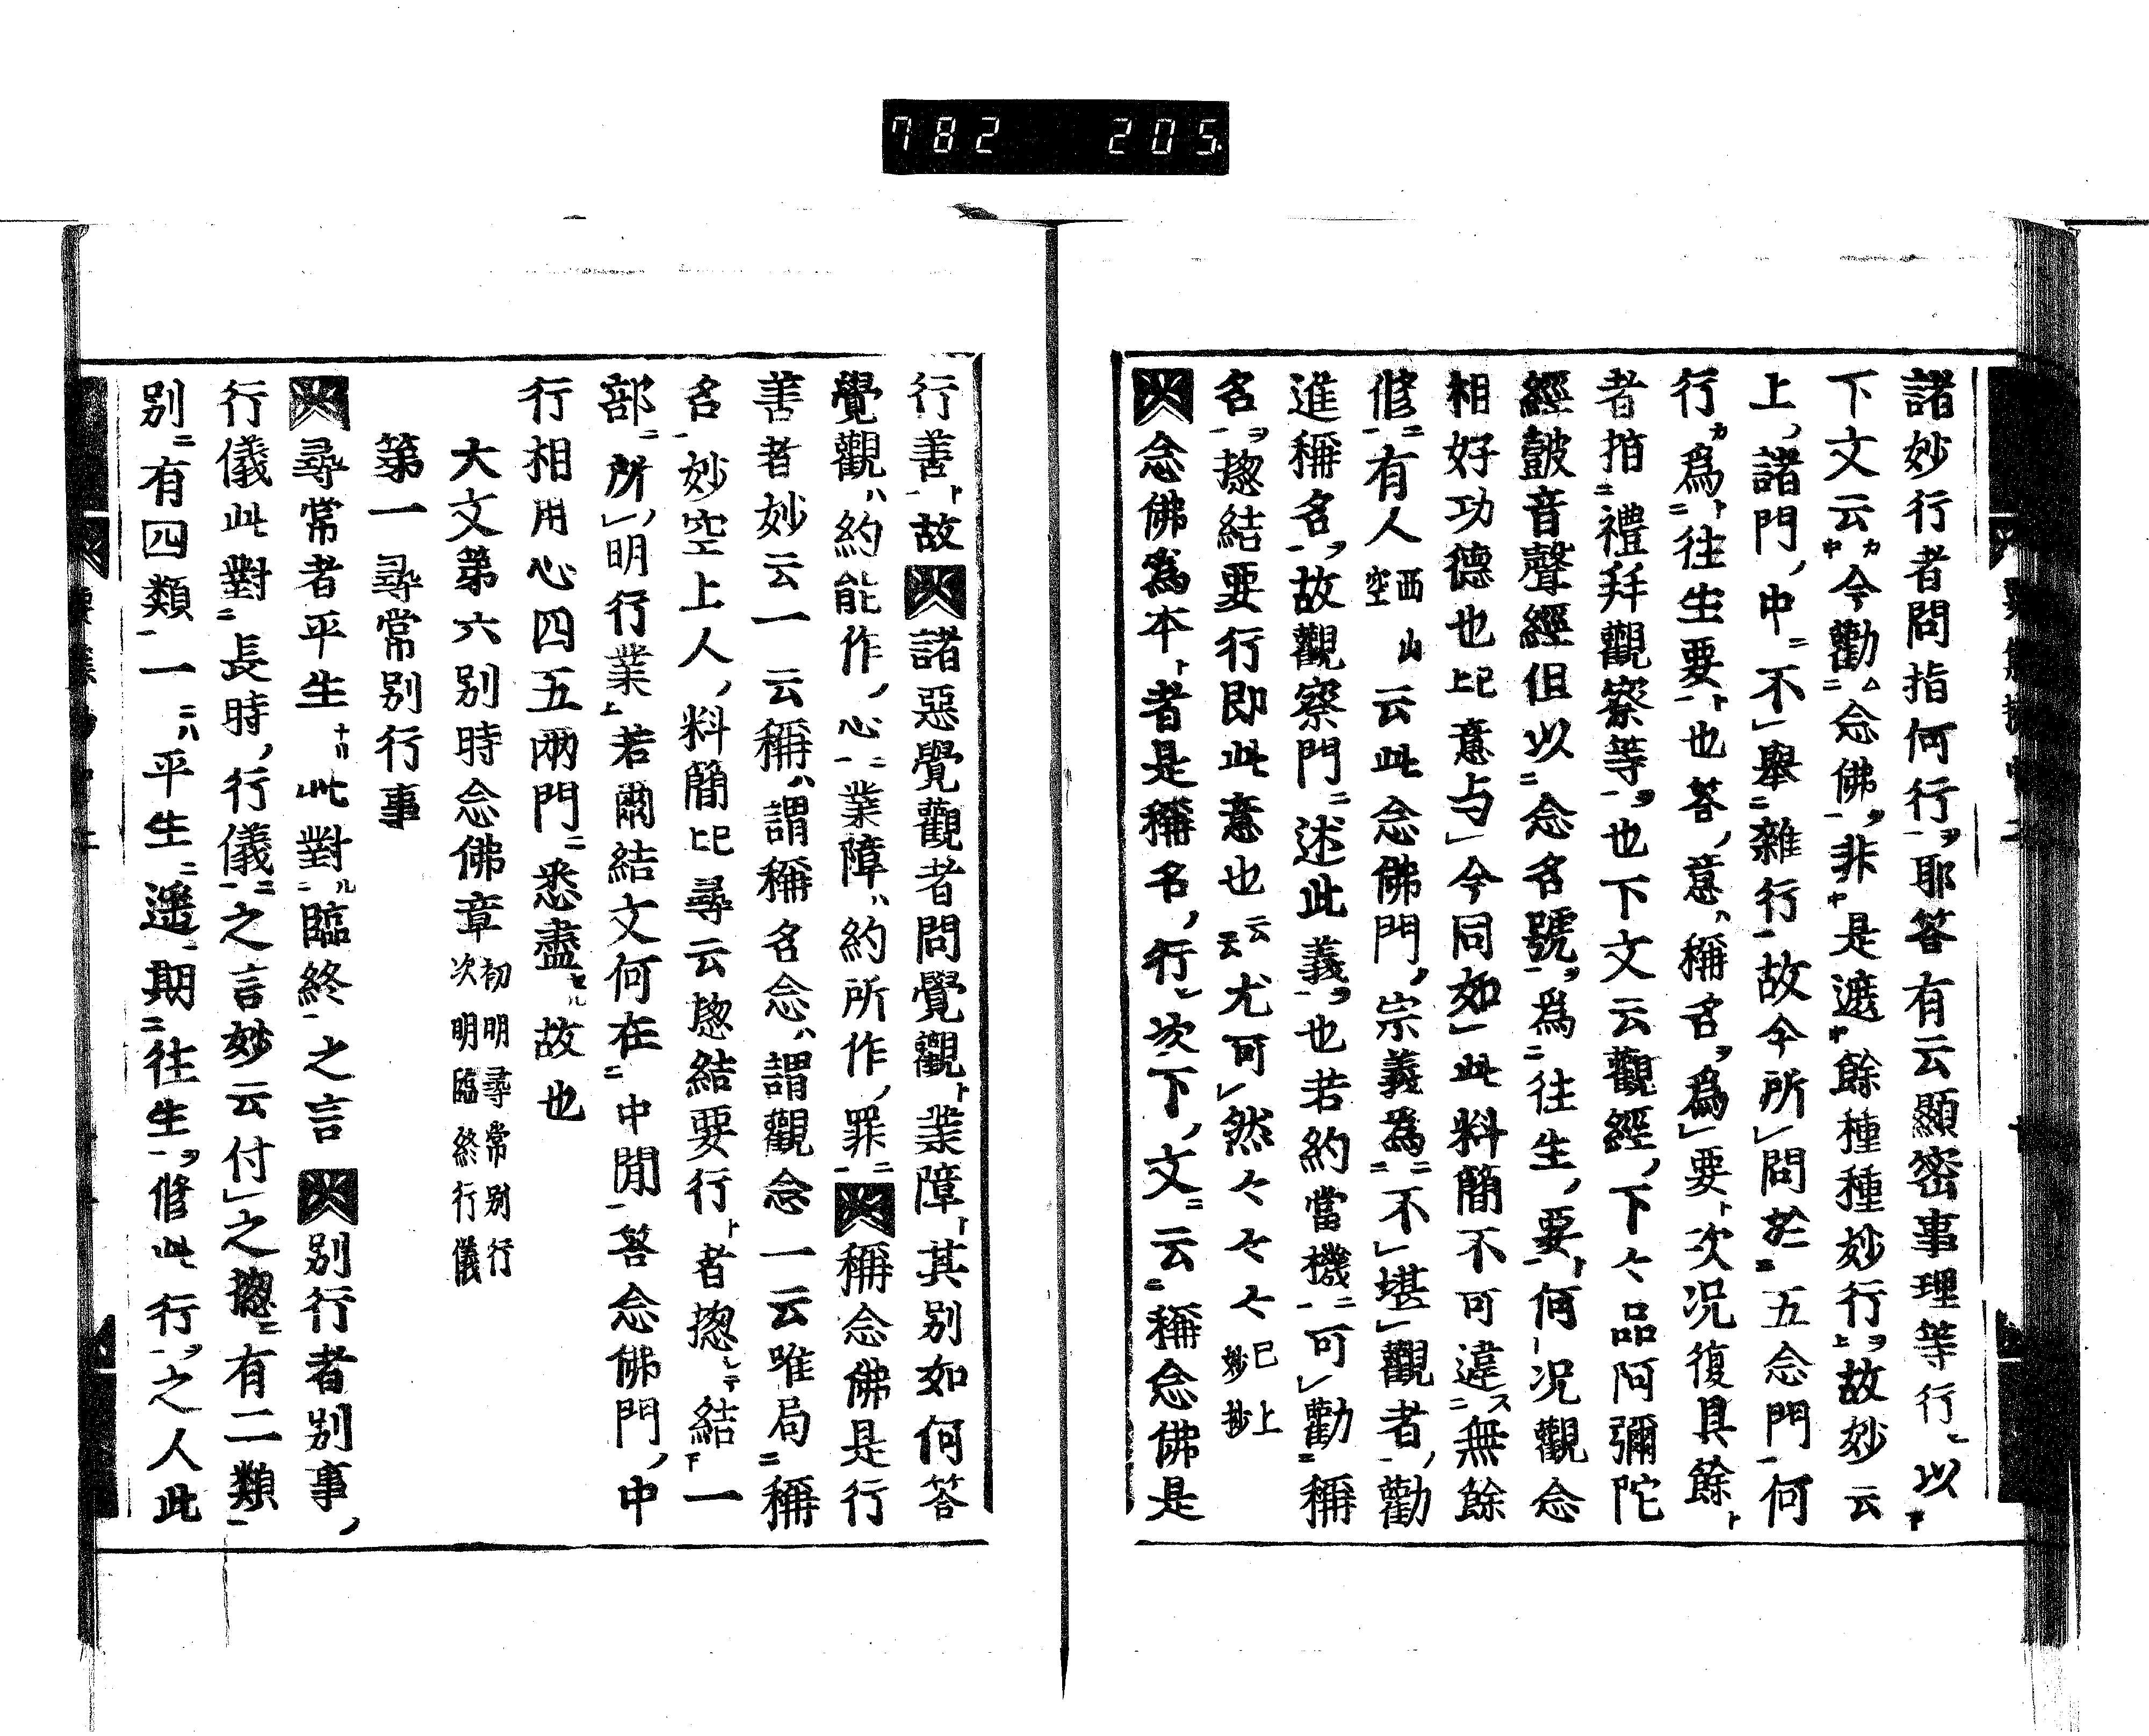 782 205
諸妙行者問指何行耶答有云顯密事理等行以
下文云今勸念佛非是遮餘種種妙行故妙云
上諸門中不舉雜行故今所問於五念門何
行爲往生要也答意稱名爲要次况復具餘
者指禮拜觀察等也下文云觀經下々品阿彌陀
經鼓音聲經但以念名號爲往生要何况觀念
相好功德也記意与今同如此料簡不可違無餘
修有人西山空云此念佛門宗義為不堪觀者勸
進稱名故觀察門述此義也若約當機可勸稱
名揔結要行即此意也云云尤可然々々々已上妙抄
念佛爲本者是稱名行次下文云稱念佛是
行善故諸惡覺觀者問覺觀業障其別如何答
覺觀約能作心業障約所作罪稱念佛是行
善者妙云一云稱謂稱名念謂觀念一云唯局稱
名妙空上人料簡記尋云揔結要行者揔結一
部所明行業若爾結文何在中間答念佛門中
行相用心四五兩門悉盡故也
大文第六別時念佛章初明尋常別行次明臨終行儀
第一尋常別行事
尋常者平生此對臨終之言別行者別事
行儀此對長時行儀之言妙云付之揔有二類
別有四類一平生遙期往生修此行之人此